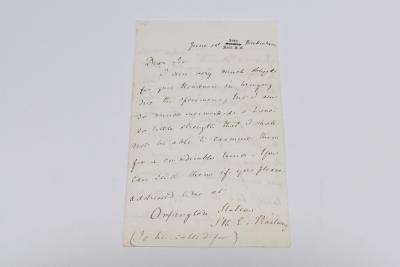 Down,
Beckenham
Kent. S.E.
June 1st
Dear Sir
I am very much obliged
for your kindness in bringing
me the specimens, but I am
so much overworked & have
so little strength that I shall
not be able to examine them
for a considerable time. You
can send them if you please
addressed here at
Orpington Station
S.E. Railway
(To be called for)